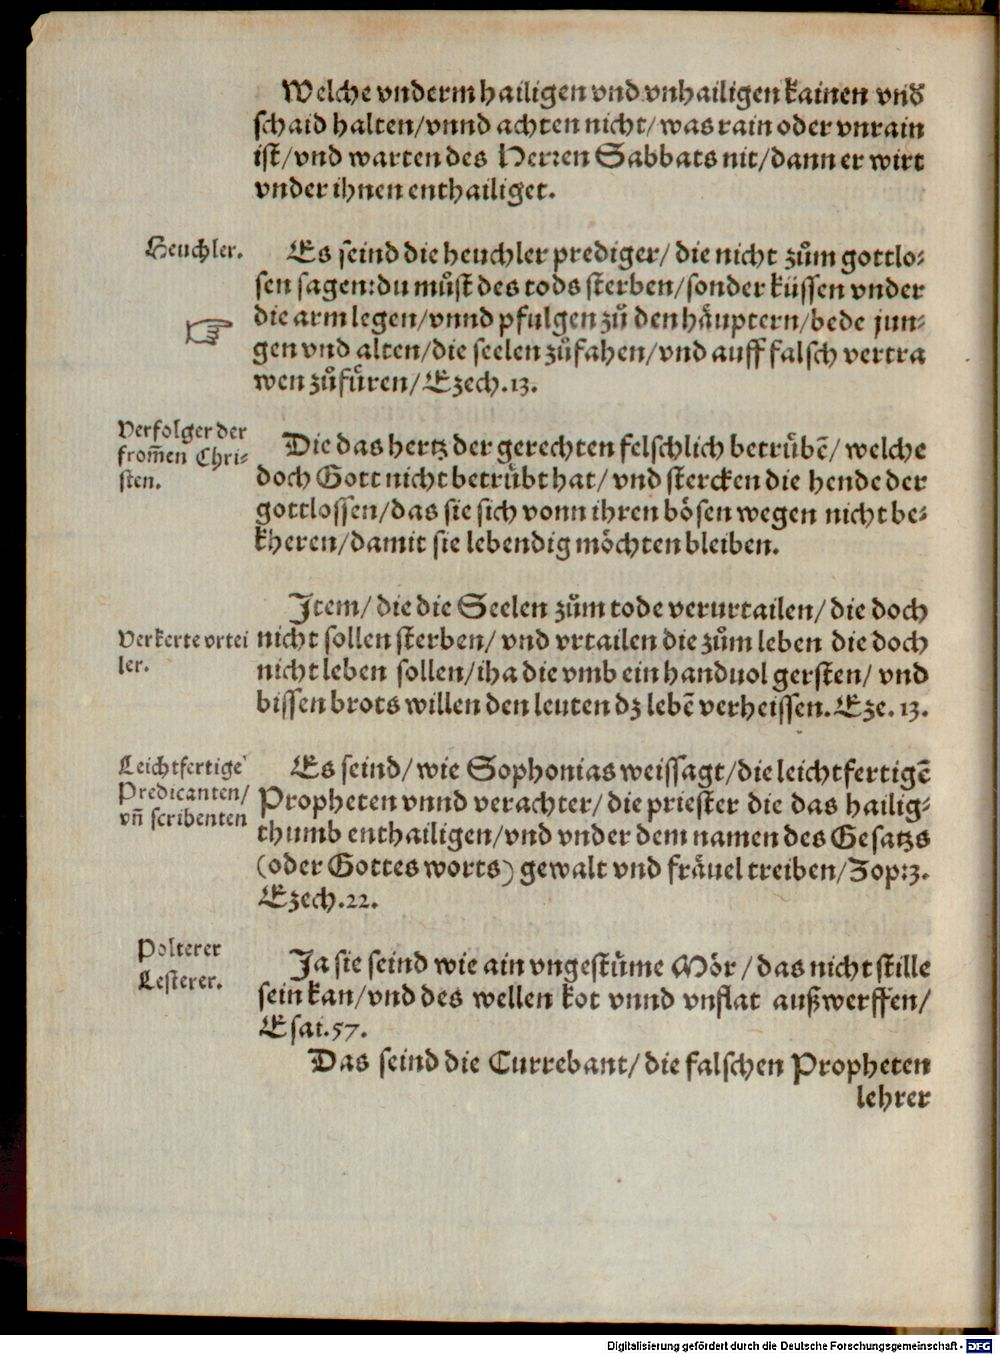 Welche vnderm hailigen vnd vnhailigen kainen vnď
schaid halten/vnnd achten nicht/was rain oder vnrain
ist/vnd warten des Herren Sabbats nit/dann er wirt
vnder ihnen enthailiget.
Heuchler.
Es seind die heuchler prediger/die nicht zům gottlo⸗
sen sagen:du můst des tods sterben/sonder küssen vnder
☞
die arm legen/vnnd pfulgen zů den häuptern/bede jun⸗
gen vnd alten/die seelen zůfahen/vnd auff falsch vertra
wen zůfüren/Ezech.13.
Verfolger der
from̄en Chri⸗
sten.
Die das hertz der gerechten felschlich betrübē/welche
doch Gott nicht betrübt hat/vnd stercken die hende der
gottlossen/das sie sich vonn ihren bösen wegen nicht be⸗
kheren/damit sie lebendig möchten bleiben.
Item/die die Seelen zům tode verurtailen/die doch
Verkerte vrtei
ler.
nicht sollen sterben/vnd vrtailen die zům leben die doch
nicht leben sollen/iha die vmb ein handuol gersten/vnd
bissen brots willen den leuten dz lebē verheissen.Eze.13.
Leichtfertige
Predicanten/
vn̄ scribenten
Es seind/wie Sophonias weissagt/die leichtfertigē
Propheten vnnd verachter/die priester die das hailig⸗
thumb enthailigen/vnd vnder dem namen des Gesatzs
(oder Gottes worts) gewalt vnd fräuel treiben/Zop:3.
Ezech.22.
Polterer
Lesterer.
Ja sie seind wie ain vngestüme Mör/das nicht stille
sein kan/vnd des wellen kot vnnd vnflat außwerffen/
Esai.57.
Das seind die Currebant/die falschen Propheten
lehrer
Digitalisierung gefördert durch die Deutsche Forschungsgemeinschaft - DFG